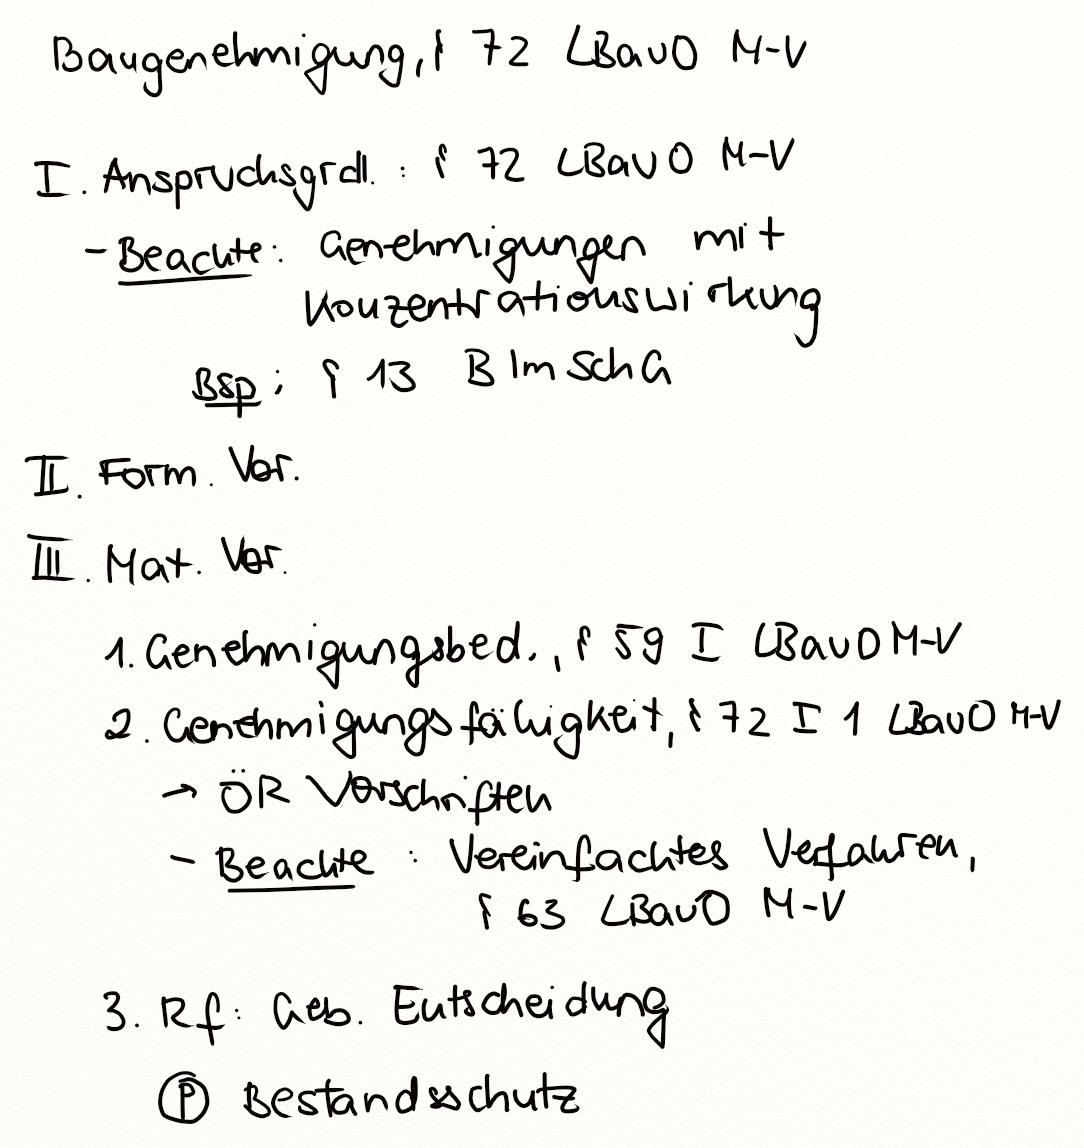 Baugenehmigung, § 72 LBauO M-V
I. Anspruchsgrdl. : § 72 LBauO M-V
- Beachte: Genehmigungen mit
Konzentrationswirkung
Bsp: § 13 BImSchG
II. Form. Vor.
III. Mat. Vor.
1. Genehmigungsbed., § 59 I LBauO M-V
2. Genehmigungsfähigkeit, § 72 I 1 LBauO M-V
→ ÖR Vorschriften
- Beachte : Vereinfachtes Verfahren,
§ 63 LBauO M-V
3. Rf: Geb. Entscheidung
Ⓟ Bestandsschutz